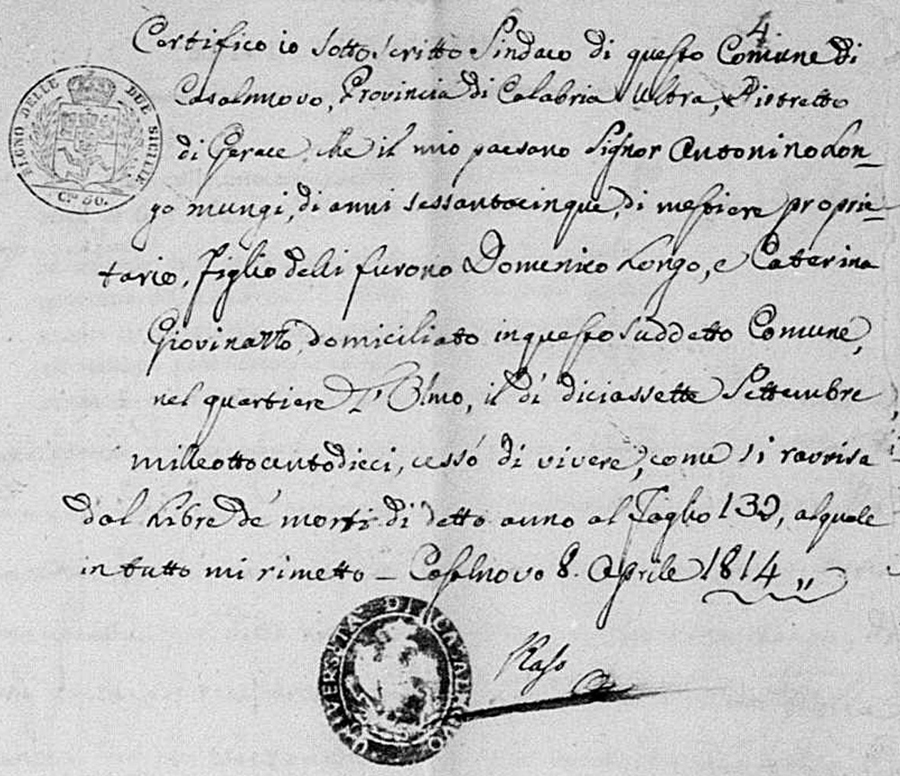 4
Certifico io sottoscritto Sindaco di questo Comune di
Casalnuovo, Provincia di Calabria Ultra, Distretto
di Gerace che il mio paesano Signor Antonino Lon_
go mungi, di anni sessantacinque, di mestiere proprie_
tario, Figlio delli furono Domenico Longo, e Catarina
Giovinazzo, domiciliato in questo suddetto Comune,
nel quartiere l'Olmo, il dí diciassette Settembre
milleottocentodieci, cessó di vivere, come si ravvisa
dal Libre de' morti di detto anno al Foglio 130, al quale
in tutto mi rimetto _ Casalnovo 8. Aprile 1814 „
REGNO DELLE DUE SICILIE
Cⁱ 50.
UNIVERSITAS DI CASALNVO
Raso